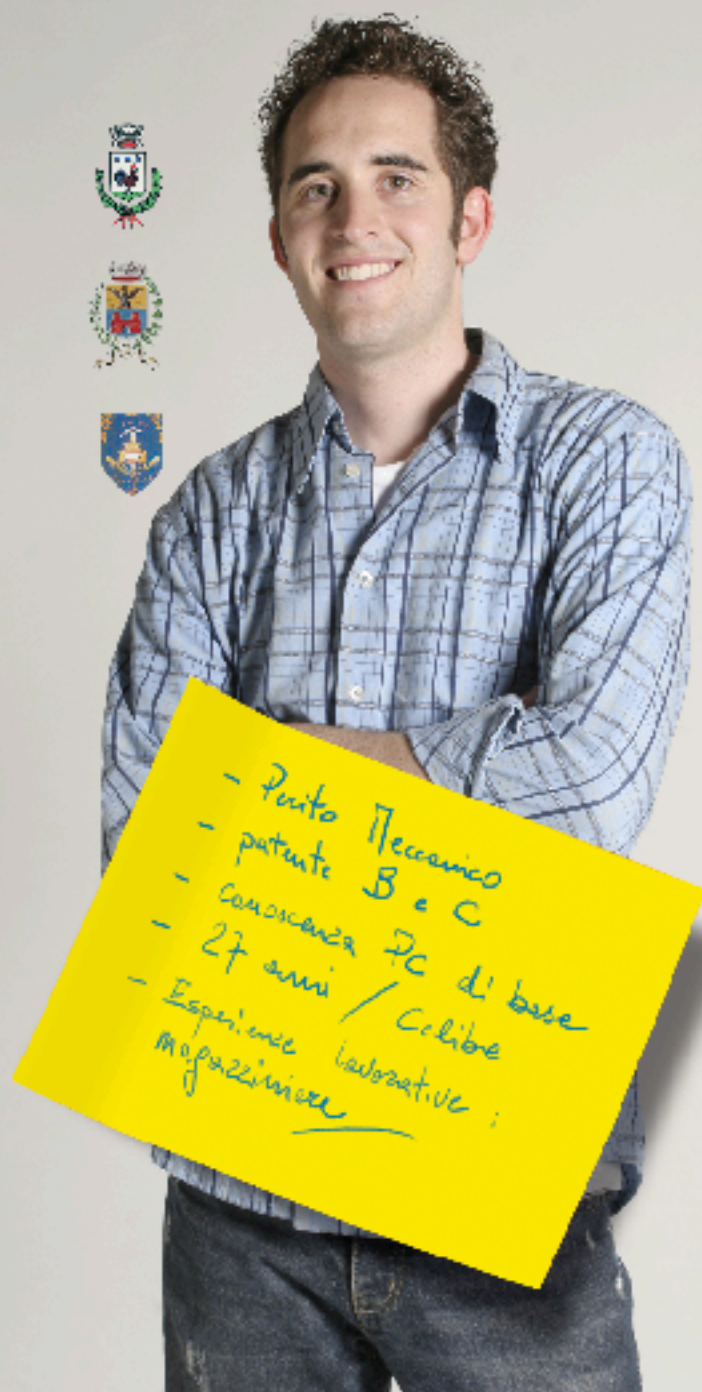 - Perito Meccanico
- patente B e C
- conoscenza PC di base
- 27 anni / Celibe
- Esperienze lavorative :
magazziniere